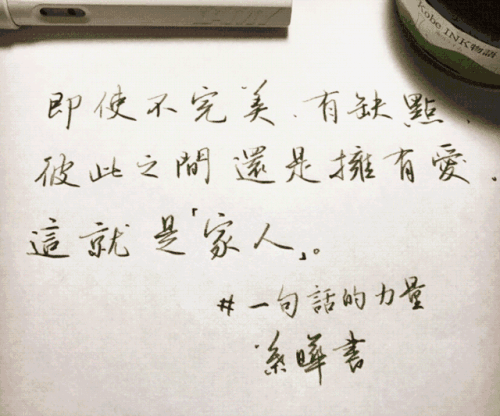 Kobe INK物語
即使不完美、有缺點，
彼此之間還是擁有愛，
這就是「家人」。
#一句話的力量
葉曄書